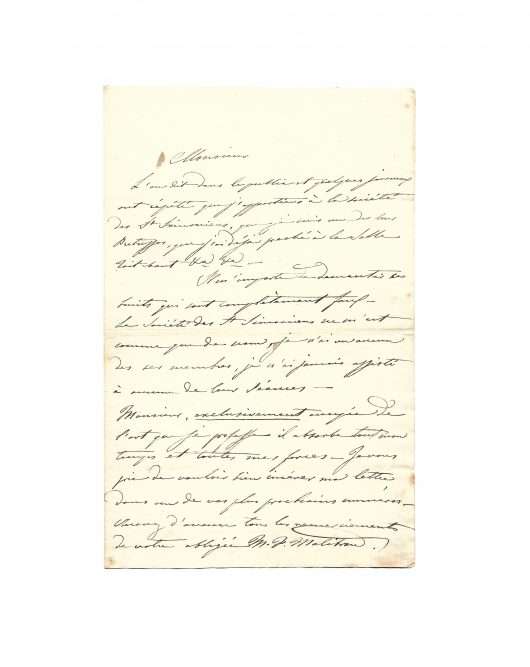 Monsieur
L'on dit dans le public et quelques journaux
ont répété que j'appartiens à la société
des St Simoniens, que je suis une des leurs
que j'ai déjà prêché à la Salle
Tait bout &a &a —
Il m'importe de démentir ces
bruits qui sont complètement faux —
la Société des St Simoniens ne m'est
connue que de nom, je n'ai vu aucun
des ses membres, je n'ai jamais assisté
à aucune de leurs séances —
Monsieur, exclusivement occupée de
l'art que je professe il absorbe tout mon
temps et toutes mes forces — Je vous
prie de vouloir bien insérer ma lettre
dans un de vos plus prochains numéros —
d'avance tous les remerciements
de votre obligée M. F. Malibran